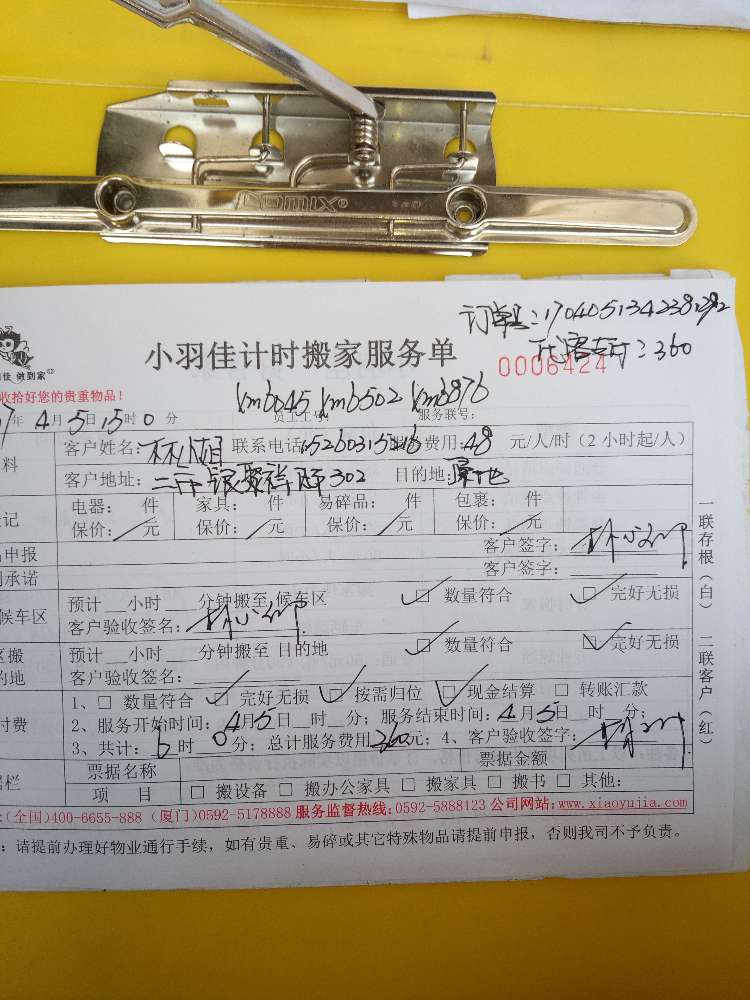 COMIX®
订单号:170405134238292
代客支付:360
0006424
佳 做到家
小羽佳计时搬家服务单
收拾好您的贵重物品!
xm6045 xm6502 xm6876
年4月5日15时0分 员工工号: 服务联号:
客户姓名:林小姐 联系电话: 服务费用:48 元/人/时(2小时起/人)
客户地址: 302 目的地:原地
电器: 件 家具: 件 易碎品: 件 包裹: 件
保价: / 元 保价: / 元 保价: / 元 保价: / 元
申报 客户签字:
承诺 客户签字:
候车区 预计__小时__分钟搬至 候车区 ☑ 数量符合 ☑ 完好无损
客户验收签名:
预计__小时__分钟搬至 目的地 ☑ 数量符合 ☑ 完好无损
客户验收签名:
1、☐ 数量符合 ☑ 完好无损 ☑ 按需归位 ☑ 现金结算 ☐ 转账汇款
付费 2、服务开始时间:4月5日__时__分;服务结束时间:4月5日__时__分;
3、共计:6时0分;总计服务费用360元;4、客户验收签字:
票据名称 票据金额
项 目 ☐ 搬设备 ☐ 搬办公家具 ☐ 搬家具 ☐ 搬书 ☐ 其他:
(全国)400-6655-888 (厦门)0592-5178888 服务监督热线:0592-5888123 公司网站:www.xiaoyujia.com
:请提前办理好物业通行手续,如有贵重、易碎或其它特殊物品请提前申报,否则我司不予负责。
一联存根(白) 二联客户(红)